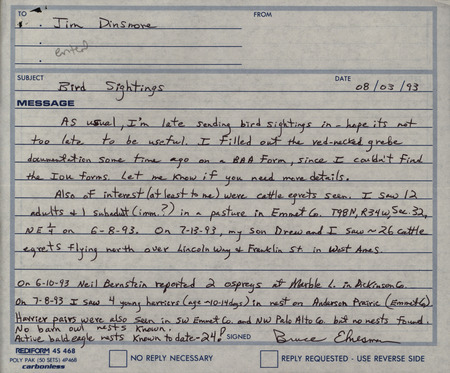 TO
FROM
Jim Dinsmore
entered
SUBJECT
Bird Sightings
DATE
08/03/93
MESSAGE
As usual, I'm late sending bird sightings in - hope its not
too late to be useful. I filled out the red-necked grebe
documentation some time ago on a BAA form, since I couldn't find
the IOU forms. Let me know if you need more details.
Also of interest (at least to me) were cattle egrets seen. I saw 12
adults & 1 subadult (imm.?) in a pasture in Emmet Co. T98N, R34W, Sec. 32,
NE ¼ on 6-8-93. On 7-13-93, my son Drew and I saw ~26 cattle
egrets flying north over Lincoln Way & Franklin St. in West Ames.
On 6-10-93 Neil Bernstein reported 2 ospreys at Marble L. in Dickinson Co.
On 7-8-93 I saw 4 young harriers (age ~10-14 days) in nest on Anderson Prairie (Emmet Co)
Harrier pairs were also seen in SW Emmet Co. and NW Palo Alto Co. but no nests found.
No barn owl nests known.
Active bald eagle nests known to date - 24!
SIGNED
Bruce Ehresman
REDIFORM 4S 468
POLY PAK (50 SETS) 4P468
carbonless
NO REPLY NECESSARY
REPLY REQUESTED - USE REVERSE SIDE